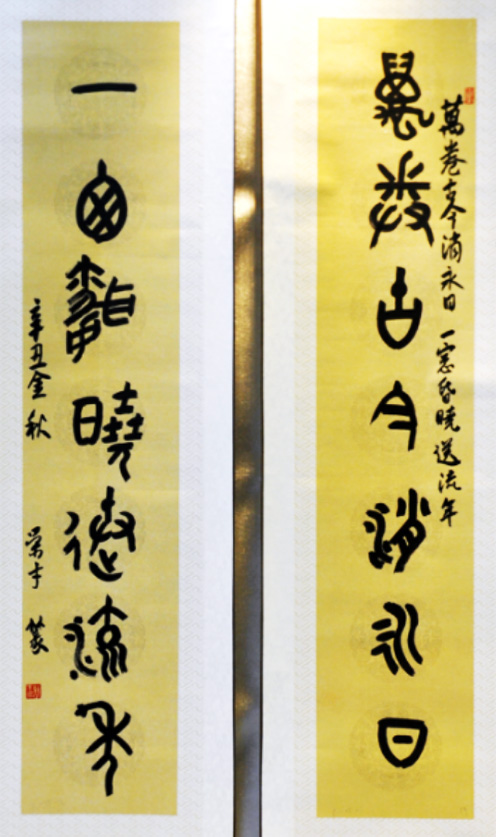 萬卷古今消永日
萬卷古今消永日 一窓昏曉送流年
一窓昏曉送流年
辛丑金秋 榮才篆